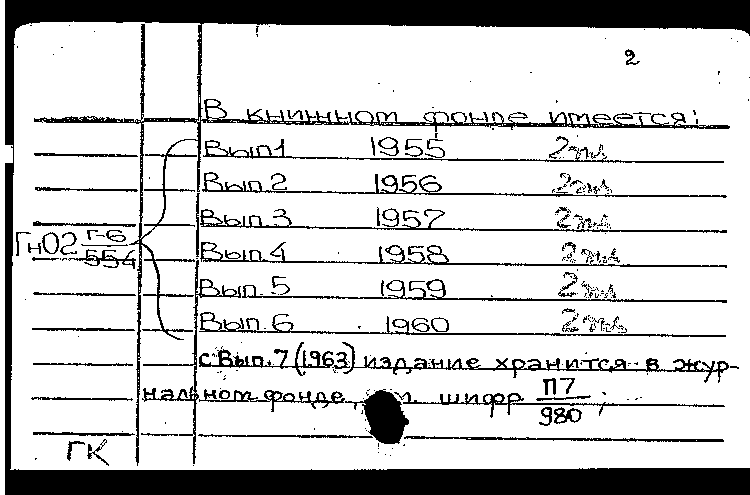 2
В книжном фонде имеется:
Вып.1 1955 2 экз
Вып.2 1956 2 экз
Вып.3 1957 2 экз
ГнО2 Г-6/554
Вып.4 1958 2 экз
Вып.5 1959 2 экз
Вып.6 1960 2 экз
с Вып.7 (1963) издание хранится в жур-
нальном фонде, шифр П7/980;
ГК